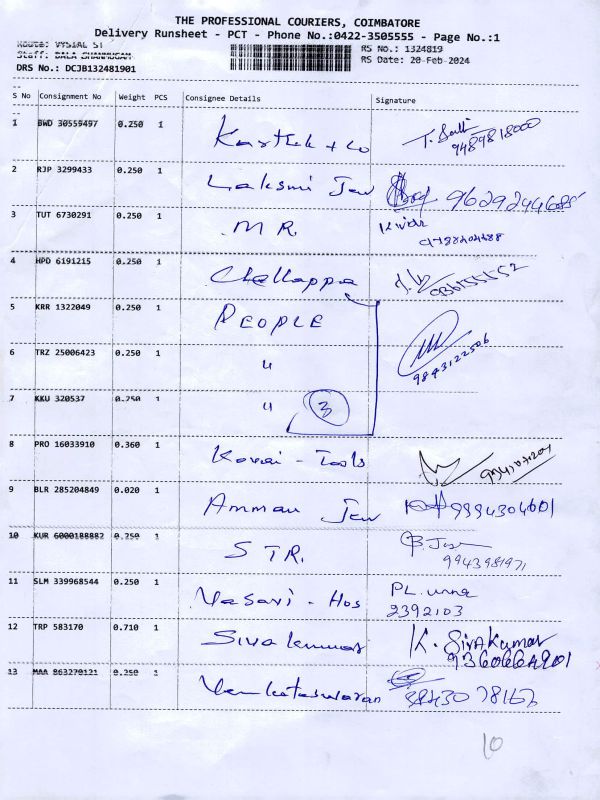 THE PROFESSIONAL COURIERS, COIMBATORE
Delivery Runsheet - PCT - Phone No.:0422-3505555 - Page No.:1
Route: VYSIAL ST RS No.: 1324819
Staff: BALA SHANMUGAM RS Date: 20-Feb-2024
DRS No.: DCJB132481901
S No Consignment No Weight PCS Consignee Details Signature
1 BWD 30559497 0.250 1 Karthik + co 9489818000
2 RJP 3299433 0.250 1 Laksmi Jew
3 TUT 6730291 0.250 1 M R.
4 HPD 6191215 0.250 1 Chellappa
5 KRR 1322049 0.250 1 PEOPLE
6 TRZ 25006423 0.250 1 " 9843122506
7 KKU 320537 0.250 1 " 3
8 PRO 16033910 0.360 1 Kovai - Tools
9 BLR 285204849 0.020 1 Amman Jew 9994304601
10 KUR 6000188882 0.250 1 STR. 9943981971
11 SLM 339968544 0.250 1 Vasavi - Hos 2392103
12 TRP 583170 0.710 1 Sivakumar K. SivaKumar
13 MAA 863270121 0.250 1 Venkateswaran
10